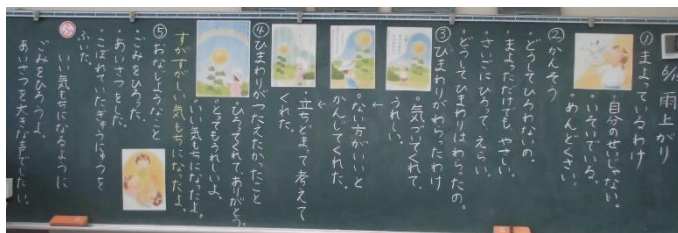 6/13 雨上がり
①まよっているわけ
・自分のせいじゃない。
・いそいでいる。
・めんどくさい。
②かんそう
・どうしてひろわないの。
・まよっただけでも、やさしい。
・さいごにひろって、えらい。
・どうしてひまわりはわらったの。
③ひまわりがわらったわけ
・気づいてくれて、
うれしい。
←
ない方がいいと
かんじてくれた。
←
立ちどまって考えて
くれた。
④ひまわりがつたえたかったこと
・ひろってくれて、ありがとう。
・とってもうれしいよ。
・いい気もちになったよ。
すがすがしい気もちになったよ。
⑤おなじようなこと
・ごみをひろった。
・あいさつをした。
・こぼれていたぎゅうにゅうを
ふいた。
いい気もちになるように
ごみをひろうよ。
あいさつを大きな声でしたい。